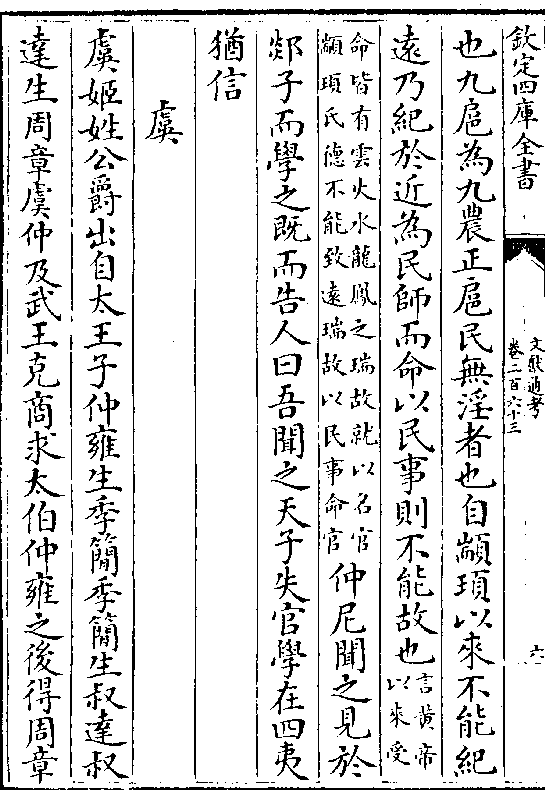 欽定四庫全書
文獻通考
卷二百六十三
六
也九扈為九農正扈民無淫者也自顓頊以來不能紀
遠乃紀於近為民師而命以民事則不能故也言黄帝以來受
命皆有雲火水龍鳳之瑞故就以名官顓頊氏德不能致遠瑞故以民事命官仲尼聞之見於
郯子而學之既而告人曰吾聞之天子失官學在四夷
猶信
虞
虞姬姓公爵出自太王子仲雍生季簡季簡生叔達叔
達生周章虞仲及武王克商求太伯仲雍之後得周章